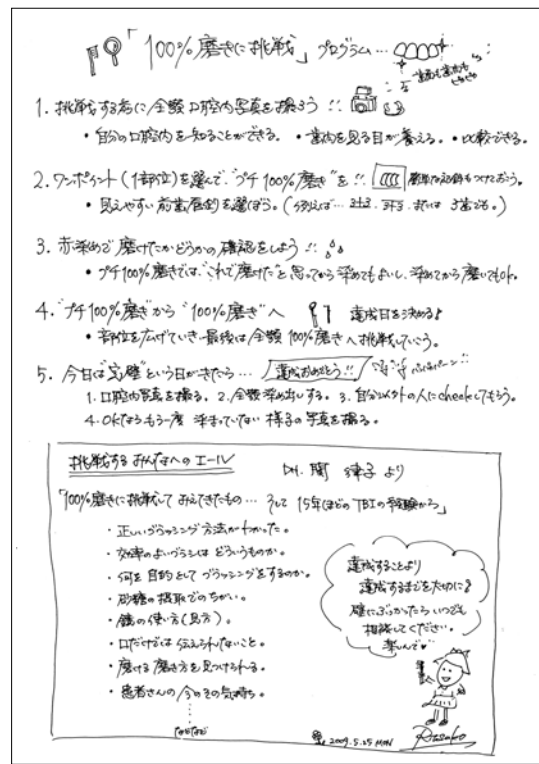 「100%磨きに挑戦」プログラム…
歯面も歯肉もぴかぴか
1. 挑戦する為に全顎口腔内写真を撮ろう!!
・自分の口腔内を知ることができる。・歯肉を見る目が養える。・比較できる。
2. ワンポイント(1部位)を選んで、"プチ100%磨き"を!! 簡単な記録もつけておこう。
・見えやすい前歯唇側を選ぼう。(例えば… 3+3、3+3、または 3歯でも。)
3. 赤染めで磨けたかどうかの確認をしよう!!
・プチ100%磨きでは、"これで磨けた"と思ってから染めてもよいし、染めてから磨いてもOK。
4. "プチ100%磨き"から"100%磨き"へ 達成日を決める♪
・部位を広げていき、最後は全顎100%磨きへ挑戦していこう。
5. 今日は"完璧"という日がきたら… 達成おめでとう!!
1. 口腔内写真を撮る。2. 全顎染め出しする。3. 自分以外の人にcheckしてもらう。
4. OKならもう一度 染まっていない様子の写真を撮る。
挑戦するみんなへのエール DH. 関 律子 より
「100%磨きに挑戦して みえてきたもの… そして 15年ほどのTBIの経験から」
・正しいブラッシング方法がわかった。
・効率のよいブラシはどういうものか。
・何を目的としてブラッシングをするのか。
・砂糖の摂取でのちがい。
・鏡の使い方(見方)。
・口だけでは伝えられないこと。
・磨ける磨き方を見つけられる。
・患者さんの今のその気持ち。
などなど
達成することより
達成するまでを大切に♪
壁にぶつかったらいつでも
相談してください。
楽しんで♥
2009.5.25 MON
Ritsuko